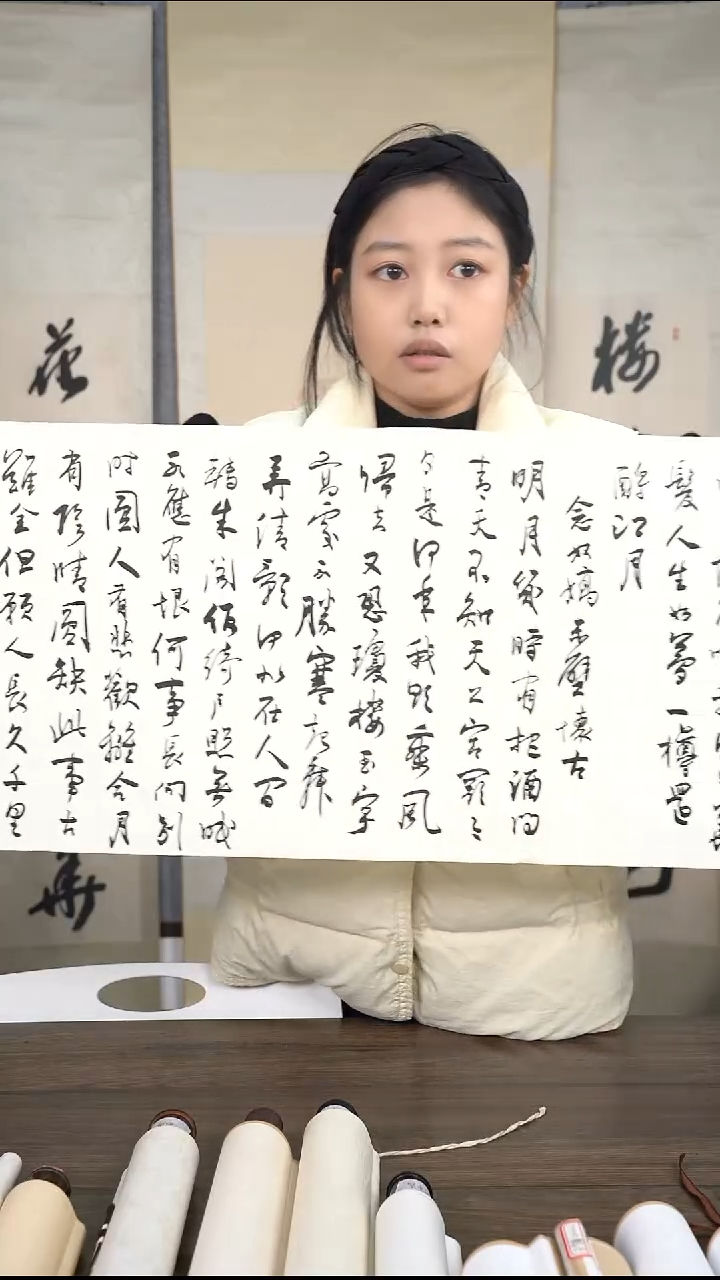 髮人生如夢一樽還
酹江月
念奴嬌赤壁懷古
明月幾時有把酒問
青天不知天上宮闕今
夕是何年我欲乘風
歸去又恐瓊樓玉宇
高處不勝寒起舞
弄清影何似在人間
轉朱閣低綺戶照無眠
不應有恨何事長向別
時圓人有悲歡離合月
有陰晴圓缺此事古
難全但願人長久千里
樓
花
華